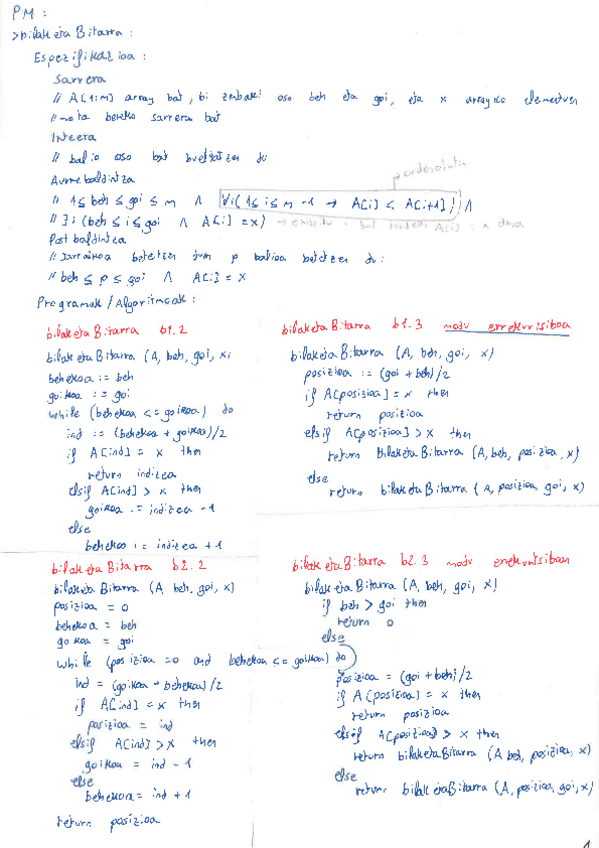 PM :
> bilaketa Bitarra :
Espezifikazioa :
Sarrera
// A[1:m] array bat, bi zenbaki oso beh eta goi, eta x arrayko elementuen
// mota bereko sarrera bat
Irteera
// balio oso bat bueltatzen du
Aurrebaldintza
// 1 ≤ beh ≤ goi ≤ m ∧ ∀i(1 ≤ i ≤ m-1 → A[i] < A[i+1]) ∧
ordenatuta
// ∃i (beh ≤ i ≤ goi ∧ A[i] = x) → existitu i bat non A[i] = x dena
Post baldintza
// Itzultzen den p balioa betetzen du :
// beh ≤ p ≤ goi ∧ A[i] = x
Programak / Algoritmoak :
bilaketa Bitarra b1.2
bilaketa Bitarra (A, beh, goi, x)
behekoa := beh
goikoa := goi
while (behekoa <= goikoa) do
ind := (behekoa + goikoa)/2
if A[ind] = x then
return indizea
elsif A[ind] > x then
goikoa := indizea -1
else
behekoa := indizea +1
bilaketa Bitarra b1.3 modu errekurtsiboa
bilaketa Bitarra (A, beh, goi, x)
posizioa := (goi + beh)/2
if A[posizioa] = x then
return posizioa
elsif A[posizioa] > x then
return Bilaketa Bitarra (A, beh, posizioa, x)
else
return bilaketa Bitarra (A, posizioa, goi, x)
bilaketa Bitarra b2.2
bilaketa Bitarra (A, beh, goi, x)
posizioa = 0
behekoa = beh
goikoa = goi
while (posizioa = 0 and behekoa <= goikoa) do
ind = (goikoa + behekoa)/2
if A[ind] = x then
posizioa = ind
elsif A[ind] > x then
goikoa = ind - 1
else
behekoa = ind + 1
return posizioa
bilaketa Bitarra b2.3 modu errekurtsiboan
bilaketa Bitarra (A, beh, goi, x)
if beh > goi then
return 0
else
posizioa = (goi + beh)/2
if A[posizioa] = x then
return posizioa
elsif A[posizioa] > x then
return bilaketa Bitarra (A, beh, posizioa, x)
else
return bilaketa Bitarra (A, posizioa, goi, x)
1